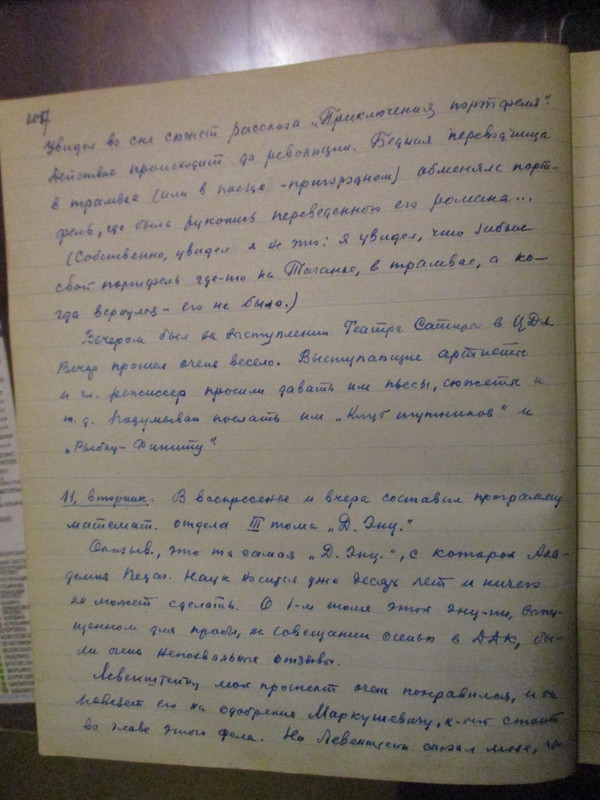 Увидел во сне сюжет рассказа „Приключения портфеля".
Действие происходит до революции. Бедная переводчица
в трамвае (или в поезде - пригородном) обменяла порт-
фель, где была рукопись переведенного ею романа...
(Собственно, увидел я не это: я увидел, что забыл
свой портфель где-то на Таганке, в трамвае, а ко-
гда вернулся - его не было.)
Вечером был на выступлении Театра Сатиры в ЦДЛ.
Вечер прошел очень весело. Выступающие артисты
и гл. режиссер просили давать им пьесы, сюжеты и
т. д. Подумываю послать им „Клуб шутников" и
„Рыбку-Финиту".
11, вторник. В воскресенье и вчера составил программу
математ. отдела III тома „Д. Энц."
Оказыв., это та самая „Д. Энц.", с которой Ака-
демия Педаг. Наук носится уже десять лет и ничего
не может сделать. О 1-м томе этой энц-ии, выпу-
щенном для пробы, на совещании осенью в ДДК, бы-
ли очень непохвальные отзывы.
Левенштейну мой проспект очень понравился, и он
повезет его на одобрение Маркушевичу, к-рый стоит
во главе этого дела. Но Левенштейн сказал мне, что